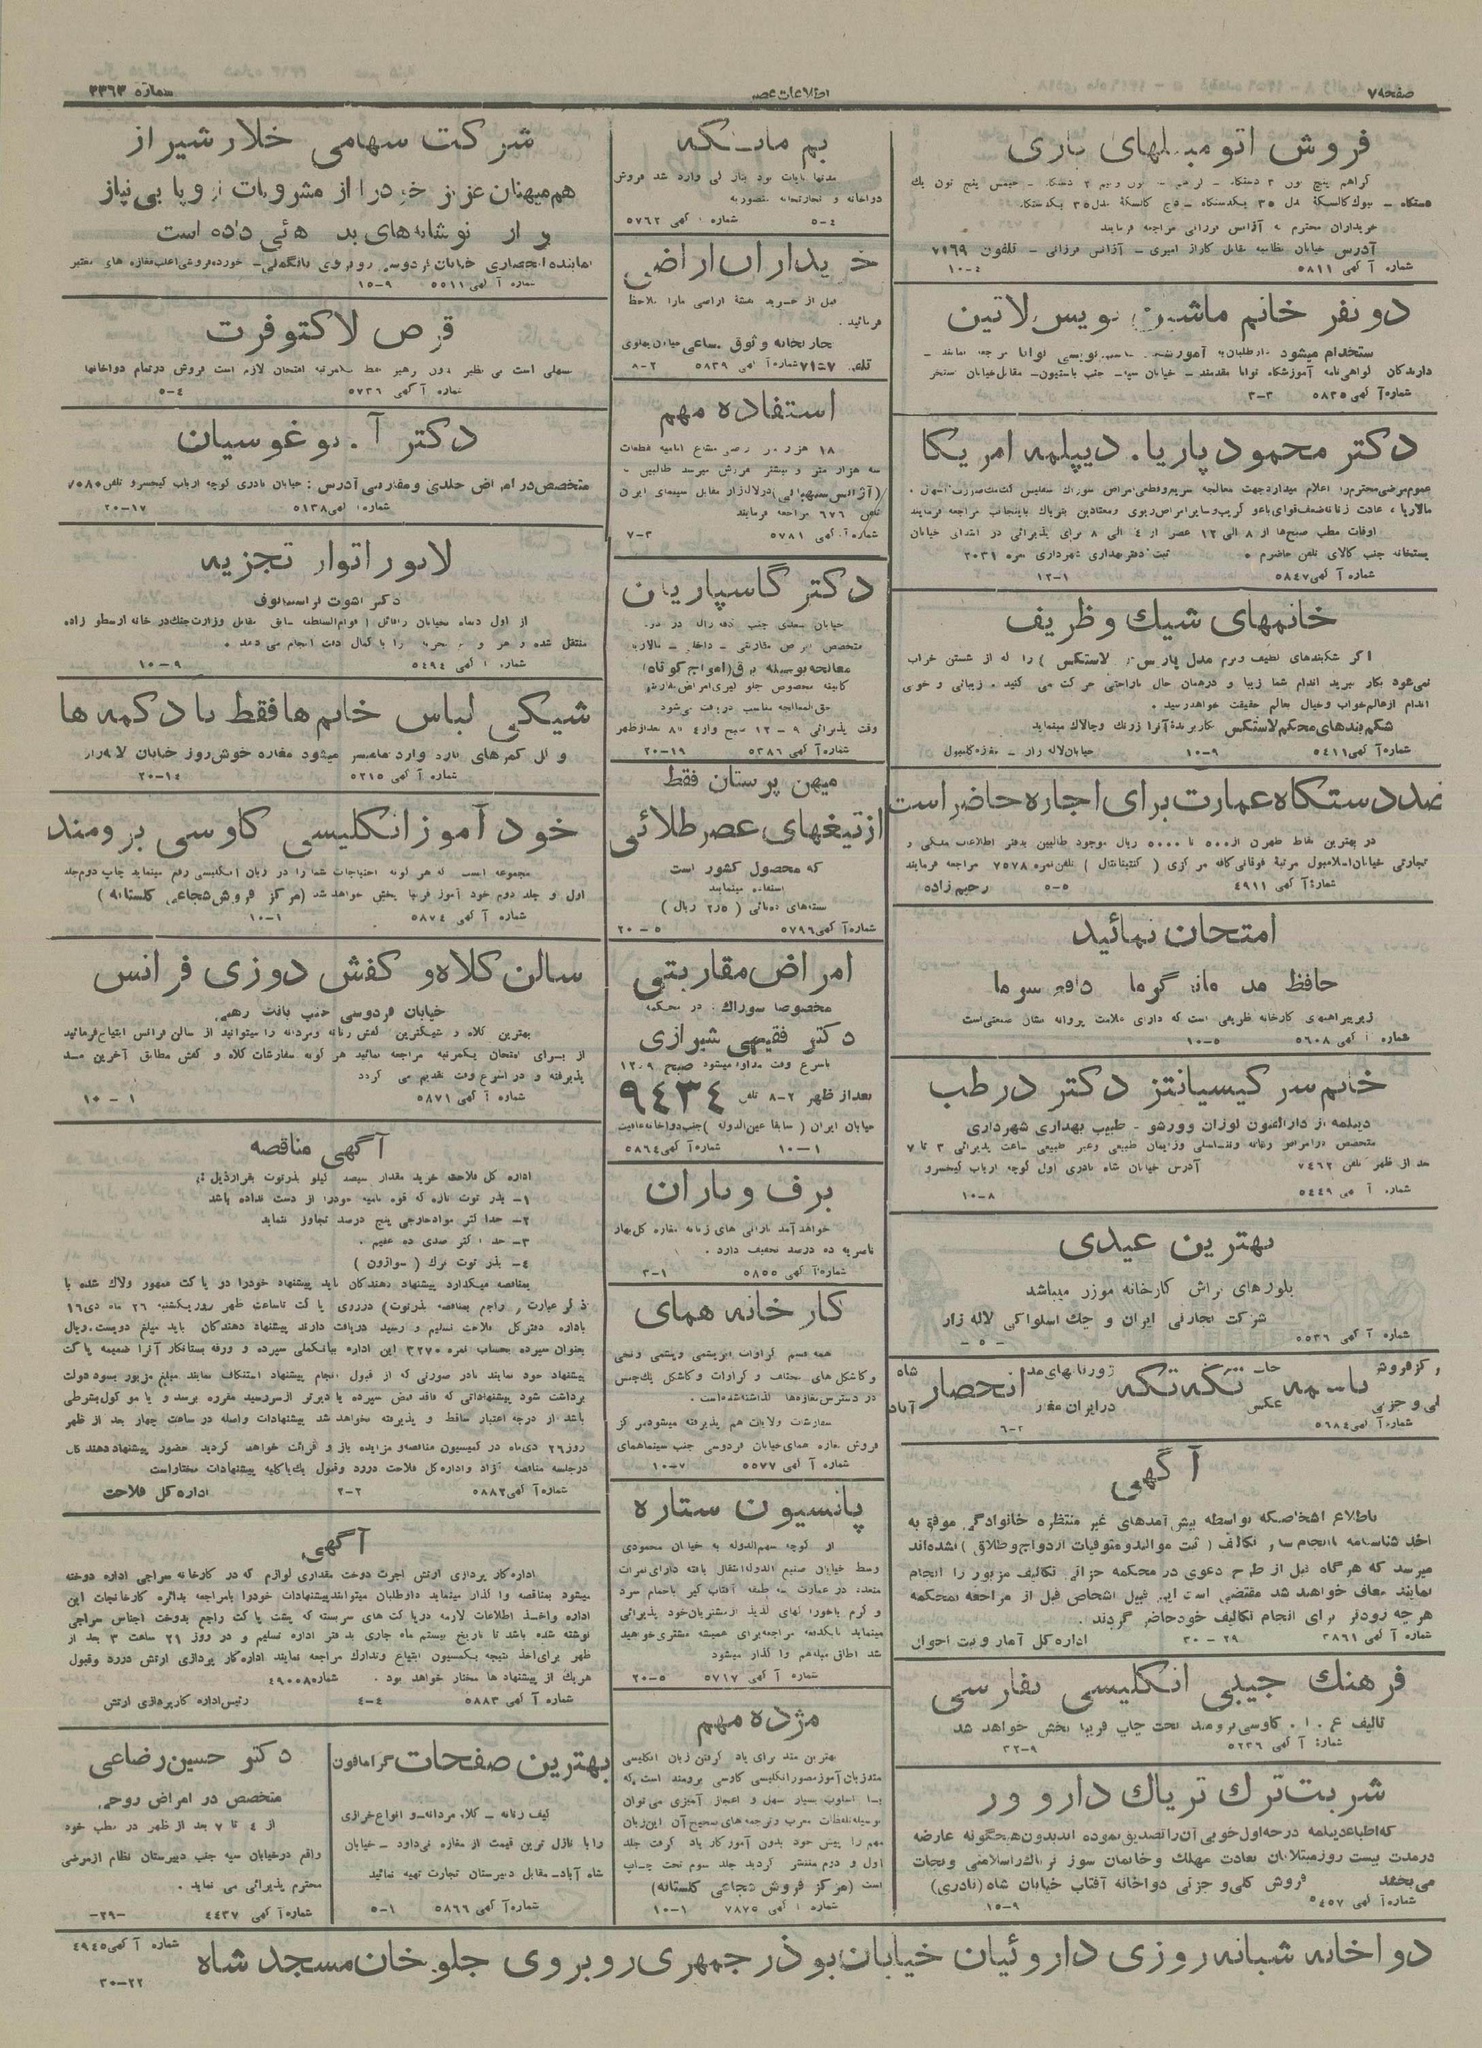 صفحه ۷
اطلاعات عصر
شماره ۳۳۶۳
فروش اتومبیلهای باری
خریداران محترم به آژانس فورانی مراجعه فرمایند
آدرس خیابان نظامیه مقابل گاراژ امیری - آژانس فرزانی - تلفون ۷۱۶۹
شماره آگهی ۵۸۱۱
۴-۱۰
دو نفر خانم ماشین نویس لاتین
دارندگان گواهی‌نامه آموزشگاه توانا مقدمند - خیابان سپه - جنب باستیون - مقابل خیابان سنخر
شماره آگهی ۵۸۳۵
۳-۳
دکتر محمود پاریا. دیپلمه امریکا
اوقات مطب صبح‌ها از ۸ الی ۱۲ عصر از ۴ الی ۸ برای پذیرائی در ابتدای خیابان
پستخانه جنب کالای تلفن حاضرم . ثبت دفتر بهداری شهرداری نمره ۲۰۳۱
شماره آگهی ۵۸۴۷
۱-۱۲
خانمهای شیك و ظریف
اگر شکبندهای لطیف و نرم مدل پاریس (لاستکس) را که از شستن خراب
نمی‌شود بکار ببرید اندام شما زیبا و درهمان حال بناراحتی حرکت می کنید . زیبائی و خوبی
اندام از عالم خواب و خیال بعالم حقیقت خواهد رسید .
شکم بندهای محکم لاستکس
شماره آگهی ۵۴۱۱
۹-۱۰
خیابان لاله زار - مغازه گلمپول
صد دستگاه عمارت برای اجاره حاضر است
در بهترین نقاط طهران از ۵۰۰ تا ۵۰۰۰ ریال موجود طالبین بدفتر اطلاعات ملکی و
تجارتی خیابان اسلامبول مرتبهٔ فوقانی کافه مرکزی ( کنتینانتال ) تلفن نمره ۷۵۷۸ مراجعه فرمایند
شماره آگهی ۴۹۱۱
۵-۵
رحیم زاده
امتحان نمائید
زیرپیراهنهای کارخانه ظریفی است که دارای علامت پروانه نشان صنعتی است
شماره آگهی ۵۶۰۸
۵-۱۰
خانم سرکیسیانتز دکتر در طب
دیپلمه از دارالفنون لوزان و ورشو - طبیب بهداری شهرداری
متخصص در امراض زنانه و تناسلی و زایمان طبیعی و غیر طبیعی ساعت پذیرائی ۳ تا ۷
بعد از ظهر تلفن ۷۴۶۲ آدرس خیابان شاه نادری اول کوچه ارباب کیخسرو
شماره آگهی ۵۴۴۹
۸-۱۰
بهترین عیدی
بلورهای تراش کارخانه موزر میباشد
شرکت تجارتی ایران و چك اسلواکی لاله زار
شماره آگهی ۵۵۳۶
-۵-
شماره آگهی ۵۶۸۴
۲-۶
آگهی
باطلاع اشخاصیکه بواسطه پیش آمدهای غیر منتظره خانوادگی موفق به
اخذ شناسنامه یا انجام سایر تکالیف ( ثبت موالید و متوفیات ازدواج و طلاق ) نشده‌اند
میرسد که هر گاه قبل از طرح دعوی در محکمه جزائی تکالیف مزبور را انجام
نمایند معاف خواهند شد مقتضی است این قبیل اشخاص قبل از مراجعه بمحکمه
هرچه زودتر برای انجام تکالیف خود حاضر گردند .
شماره آگهی ۳۸۶۱
۲۹-۳۰
اداره کل آمار و ثبت احوال
فرهنك جیبی انگلیسی بفارسی
تالیف ع . ا . کاوسی برومند تحت چاپ قریباً پخش خواهد شد
شماره آگهی ۵۲۳۶
۹-۳۲
شربت ترك تریاك دارو ور
که اطباء دیپلمه درجه اول خوبی آن را تصدیق نموده اند بدون هیچگونه عارضه
در مدت بیست روز مبتلایان بعادت مهلك و خانمان سوز تریاك را سلامتی و نجات
می‌بخشد فروش کلی و جزئی دواخانه آفتاب خیابان شاه (نادری)
شماره آگهی ۵۴۵۷
۹-۱۵
بم مانتکه
شماره آگهی ۵۷۶۲
۴-۵
خریداران اراضی
قبل از خرید نقشهٔ اراضی ما را ملاحظه
فرمائید .
تجارتخانه وثوق ساعی خیابان پهلوی
شماره آگهی ۵۸۳۹
۲-۸
استفاده مهم
سه هزار متر و بیشتر بفروش میرسد طالبین به
در لاله‌زار مقابل سینمای ایران
تلفن ۶۷۶ مراجعه فرمایند
شماره آگهی ۵۷۸۱
۳-۷
دکتر گاسپاریان
متخصص امراض مقاربتی - داخلی - مالاریا
معالجه بوسیله برق (امواج کوتاه)
حق‌المعالجه مناسب دریافت می‌شود
وقت پذیرائی ۹ - ۱۲ صبح و از ۴ تا ۸ بعدازظهر
شماره آگهی ۵۳۸۶
۱۹-۲۰
میهن پرستان فقط
از تیغهای عصر طلائی
که محصول کشور است
استفاده مینمایند
بسته‌های ده‌تائی ( ۲٫۵ ریال )
شماره آگهی ۵۷۹۶
۵-۲۰
امراض مقاربتی
مخصوصا سوزاك در محکمه
دکتر فقیهی شیرازی
باسرع وقت مداوا میشود صبح ۹-۱۲
بعد از ظهر ۲-۸ تلفن ۹۴۳۴
خیابان ایران ( سابقا عین‌الدوله ) جنب دواخانه عافیت
شماره آگهی ۵۸۶۴
۱-۱۰
برف و باران
خواهد آمد بارانی های زنانه مغازه گل بهار
ناصریه ده درصد تخفیف دارد .
شماره آگهی ۵۸۵۵
۱-۳
کارخانه همای
همه قسم کراوات ابریشمی و پشمی و نخی
و کاشکل های مختلف و کراوات و کاشکل یك جنس
در دسترس مغازه‌ها گذاشته شده است .
سفارشات ولایات هم پذیرفته میشود مرکز
فروش مغازه همای خیابان فردوسی جنب سینما همای
شماره آگهی ۵۵۷۷
۷-۱۰
پانسیون ستاره
از کوچه سهم‌الدوله به خیابان محمودی
وسط خیابان صنیع الدوله انتقال یافته دارای نمرات
متعدد در عمارت سه طبقه آفتاب گیر با حمام سرد
و گرم با خوراکهای لذیذ از مشتریان خود پذیرائی
مینماید بایکدفعه مراجعه برای همیشه مشتری خواهید
شد اطاق مبله هم واگذار میشود
شماره آگهی ۵۷۱۷
۵-۲۰
مژده مهم
بهترین متد برای یاد گرفتن زبان انگلیسی
متد زبان آموز مصور انگلیسی کاوسی برومند است که
با اسلوب بسیار سهل و اعجاز آمیزی می‌توان
بوسیله تلفظات معرب و ترجمه‌های صحیح آن این زبان
مهم را پیش خود بدون آموزگار یاد گرفت جلد
اول و دوم منتشر گردید جلد سوم تحت چاپ
است (مرکز فروش شجاعی گلستانه)
شماره آگهی ۷۸۷۵
۱-۱۰
شرکت سهامی خلار شیراز
هم‌میهنان عزیز خود را از مشروبات اروپا بی‌نیاز
نماینده انحصاری خیابان فردوسی روبروی بانك ملی - خورده فروشی اغلب مغازه های معتبر
شماره آگهی ۵۵۱۱
۹-۱۵
قرص لاکتوفرت
مسهلی است بی نظیر بدون زهیر فقط یکمرتبه امتحان لازم است فروش در تمام دواخانها
شماره آگهی ۵۷۳۶
۴-۵
دکتر آ. بوغوسیان
متخصص در امراض جلدی و مقاربتی آدرس : خیابان نادری کوچه ارباب کیخسرو
شماره آگهی ۵۱۳۸
۱۷-۲۰
لابوراتوار تجزیه
شماره آگهی ۵۴۹۴
۹-۱۰
شیکی لباس خانم ها فقط با دکمه ها
و گل کمرهای تازه وارد میسر میشود مغازه خوش‌روز خیابان لاله‌زار
شماره آگهی ۵۳۱۵
۱۴-۲۰
خود آموز انگلیسی کاوسی برومند
مجموعه ایست که هر گونه احتیاجات شما را در زبان انگلیسی رفع مینماید چاپ دوم جلد
اول و جلد دوم خود آموز قریباً پخش خواهد شد (مرکز فروش شجاعی گلستانه)
شماره آگهی ۵۸۷۴
۱-۱۰
سالن کلاه و کفش دوزی فرانس
خیابان فردوسی جنب بانك رهنی
بهترین کلاه و شیکترین کفش زنانه و مردانه را میتوانید از سالن فرانس ابتیاع فرمائید
از برای امتحان یکمرتبه مراجعه نمائید هر گونه سفارشات کلاه و کفش مطابق آخرین مد
پذیرفته و در اسرع وقت تقدیم می گردد
شماره آگهی ۵۸۷۱
۱-۱۰
آگهی مناقصه
اداره کل فلاحت خرید مقدار سیصد کیلو بذر توت بقرار ذیل :
۱- بذر توت تازه که قوه نامیه خود را از دست نداده باشد
۲- حداکثر مواد خارجی پنج درصد تجاوز ننماید
۳- حد اکثر صدی ده عقیم .
۴- بذر توت ترك ( سوازون )
بمناقصه میگذارد پیشنهاد دهندگان باید پیشنهاد خود را در پاکت ممهور ولاك شده با
ذکر عبارت ( راجع بمناقصه بذر توت) در روی پاکت تا ساعت ظهر روز یکشنبه ۲۶ ماه دی ۱۶
باداره دفتر کل فلاحت تسلیم و رسید دریافت دارند پیشنهاد دهندگان باید مبلغ دویست ریال
بعنوان سپرده بحساب نمره ۳۲۷۰ این اداره ببانك ملی سپرده و ورقه بستانکار آنرا ضمیمه پاکت
پیشنهاد خود نمایند در صورتی که از قبول انجام پیشنهاد استنکاف نمایند مبلغ مزبور بسود دولت
برداشت شود پیشنهاداتی که فاقد قبض سپرده یا دیرتر از سررسید مقرره برسد و یا موکول بشرطی
باشد از درجه اعتبار ساقط و پذیرفته نخواهد شد پیشنهادات واصله در ساعت چهار بعد از ظهر
روز ۲۶ دی‌ماه در کمیسیون مناقصه و مزایده باز و قرائت خواهد گردید حضور پیشنهاد دهندگان
در جلسه مناقصه آزاد و اداره کل فلاحت در رد و قبول یك یا کلیه پیشنهادات مختار است
شماره آگهی ۵۸۸۲
۲-۲
اداره کل فلاحت
آگهی
اداره کارپردازی ارتش اجرت دوخت مقداری لوازم که در کارخانه سراجی اداره دوخته
میشود بمناقصه واگذار مینماید داوطلبان میتوانند پیشنهادات خود را بامراجعه بدائره کارخانجات این
اداره و اخذ اطلاعات لازمه در پاکت های سربسته که پشت پاکت راجع بدوخت اجناس سراجی
نوشته شده باشد تا تاریخ بیستم ماه جاری بدفتر اداره تسلیم و در روز ۲۱ ساعت ۳ بعد از
ظهر برای اخذ نتیجه بکمسیون ابتیاع و تدارك مراجعه نمایند اداره کارپردازی ارتش در رد و قبول
هریك از پیشنهاد ها مختار خواهد بود . شماره ۴۹۰۰۸
شماره آگهی ۵۸۸۳
۴-۴
رئیس اداره کارپردازی ارتش
بهترین صفحات گرامافون
کیف زنانه - کلاه مردانه - و انواع خرازی
را با نازل ترین قیمت از مغازه نی‌داود - خیابان
شاه آباد - مقابل دبیرستان تجارت تهیه نمائید
شماره آگهی ۵۸۶۶
۱-۵
دکتر حسین رضاعی
متخصص در امراض روحی
از ۴ تا ۷ بعد از ظهر در مطب خود
واقع در خیابان سپه جنب دبیرستان نظام از مرضی
محترم پذیرائی می نماید .
شماره آگهی ۴۴۳۷
-۲۹-
دواخانه شبانه روزی داروئیان خیابان بوذرجمهری روبروی جلوخان مسجد شاه
شماره آگهی ۴۹۴۵
۲۲-۳۰